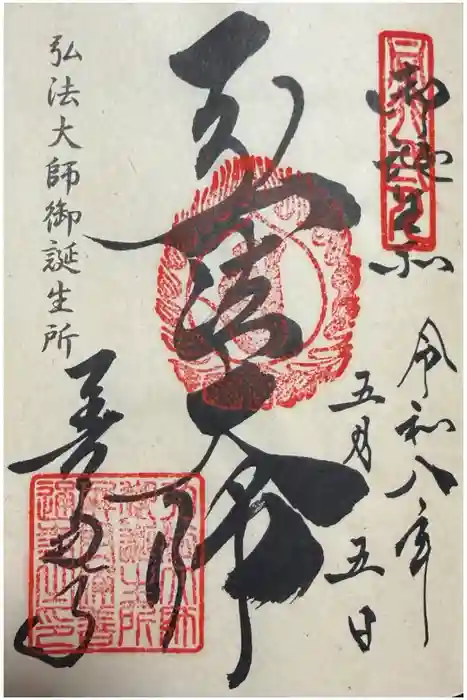 御誕生所
令和八年
五月五日
弘法大師
弘法大師御誕生所
善通寺